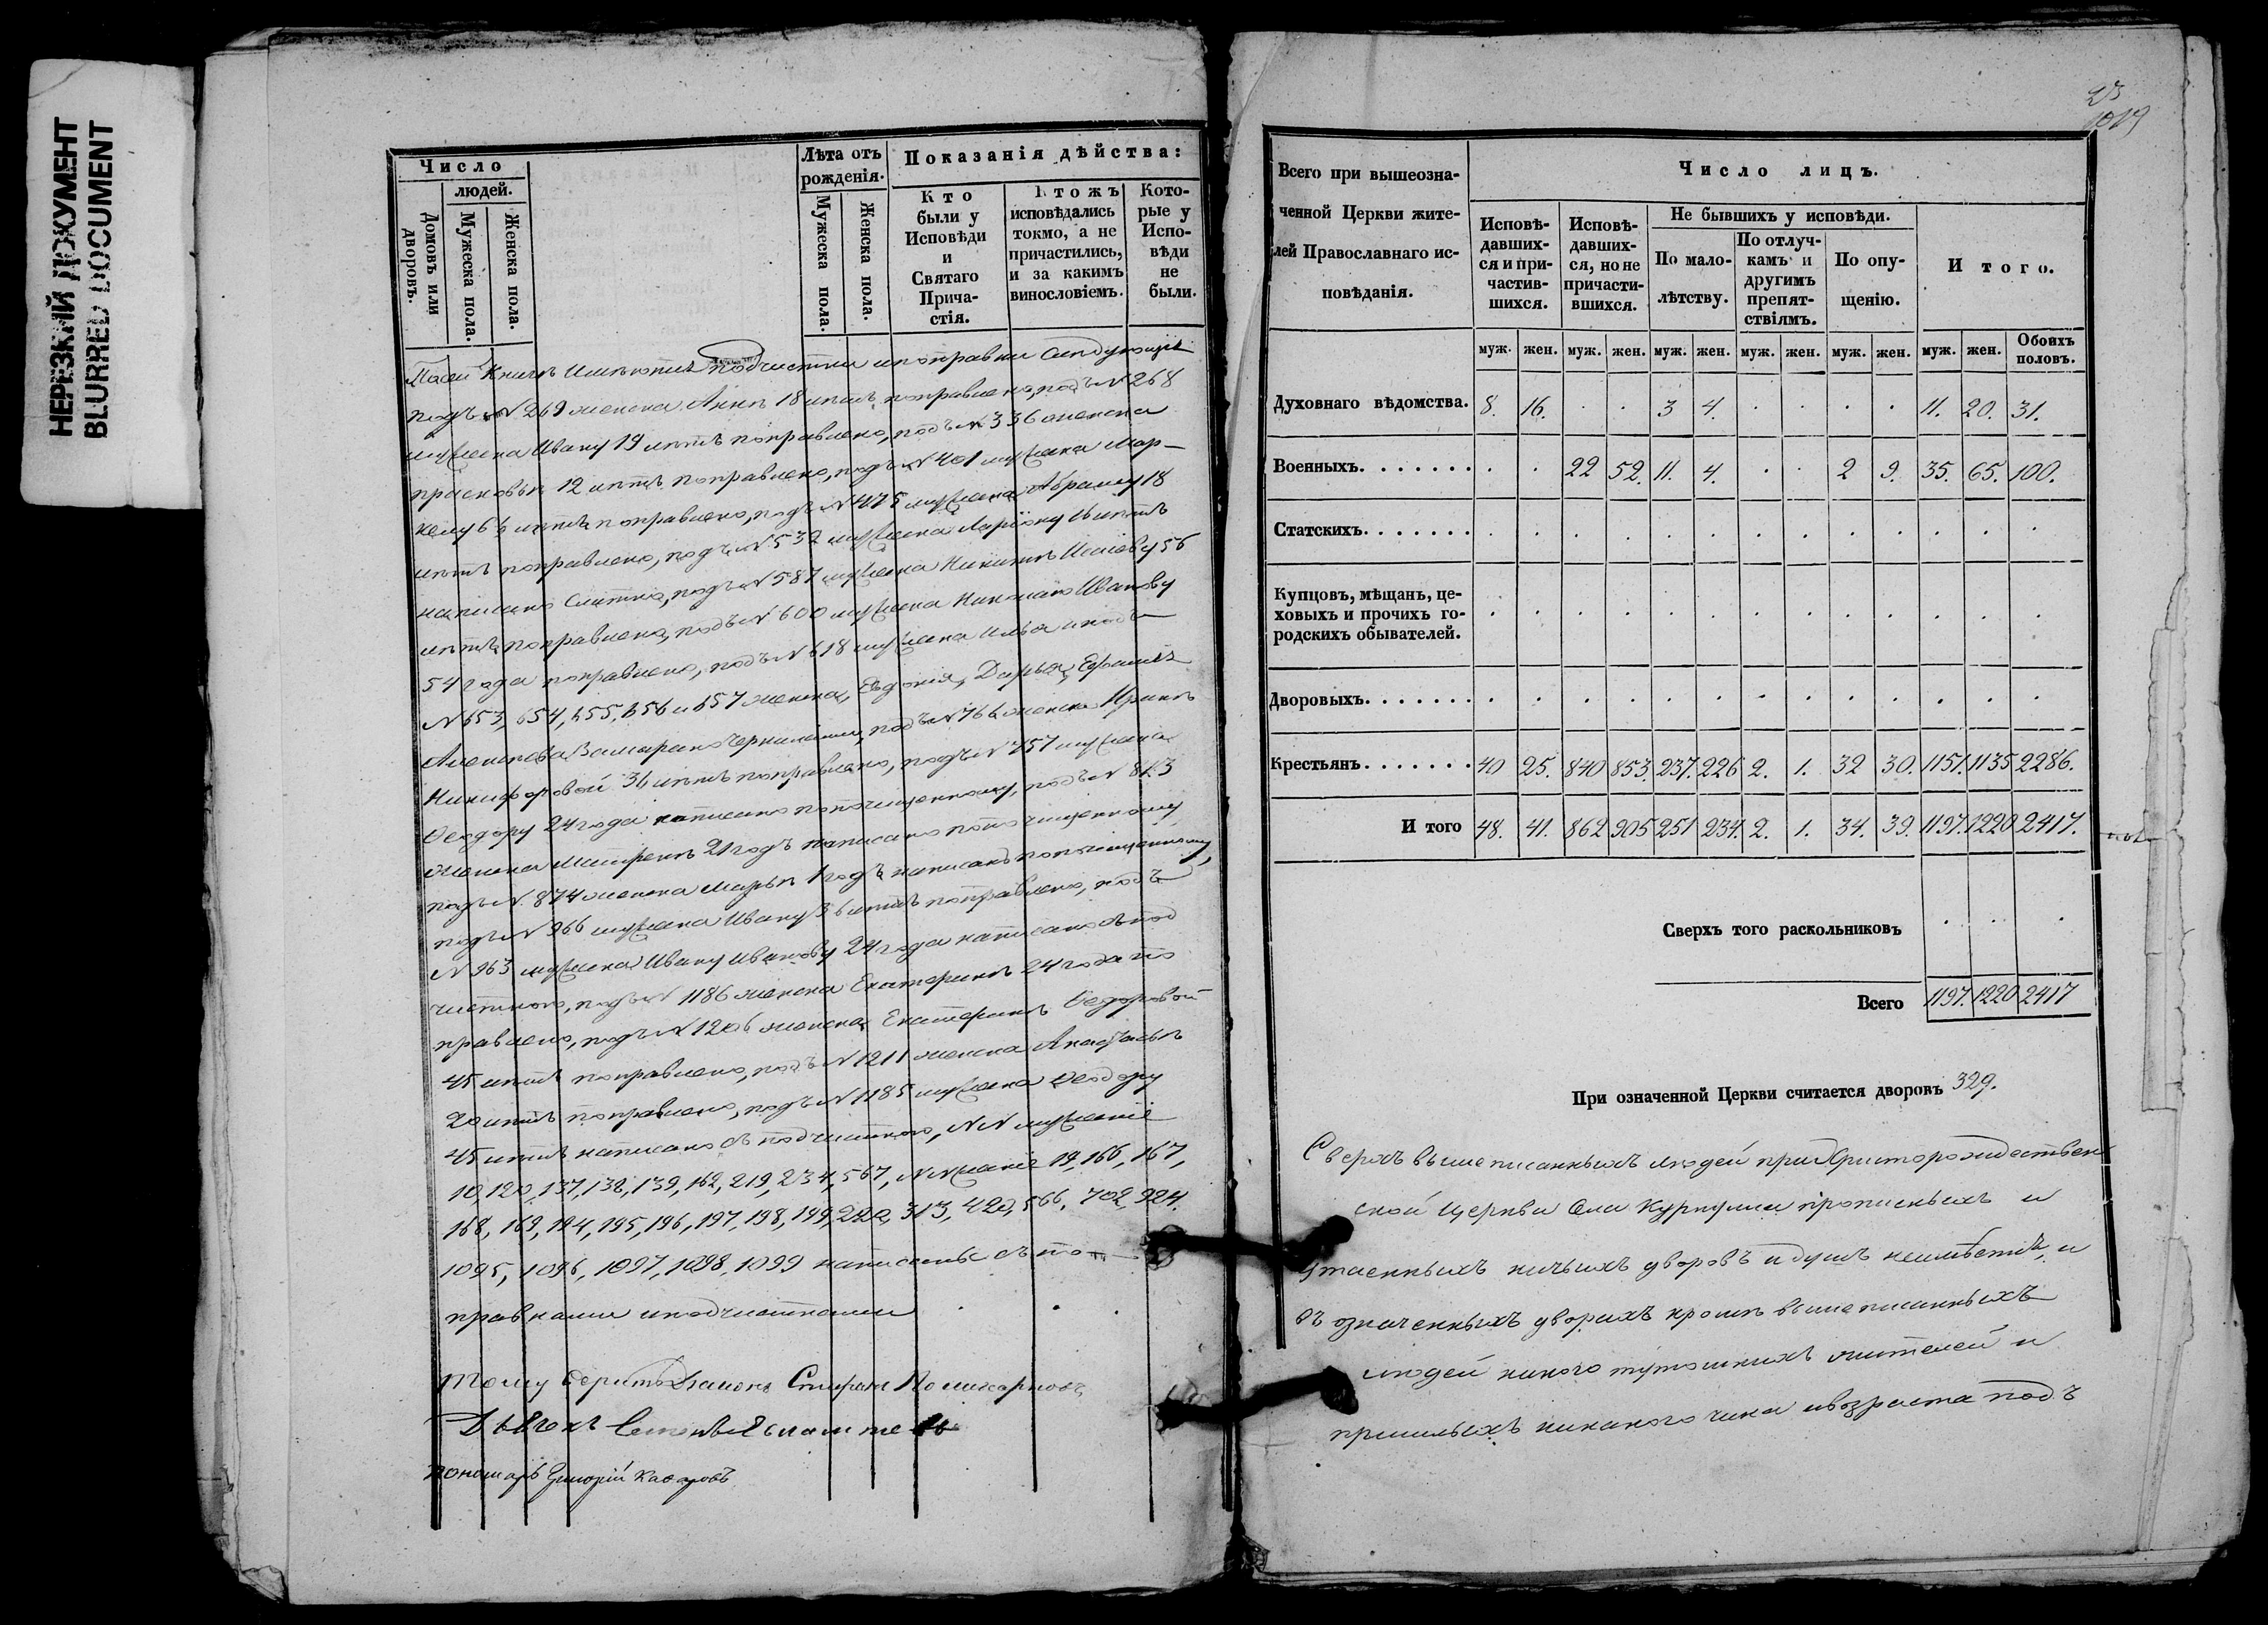 НЕРЕЗКИЙ ДОКУМЕНТ
BLURRED DOCUMENT
Число
людей.
Домовъ или дворовъ.
Мужеска пола.
Женска пола.
Лѣта отъ рожденія.
Мужеска пола.
Женска пола.
Показанія дѣйства:
Кто были у Исповѣди и Святаго Прича-стія.
Ктожъ исповѣдались токмо, а не причастились, и за какимъ винословіемъ.
Кото-рые у Испо-вѣди не были.
книгѣ подчистки и поправки слѣдующія
подъ N 269 женска Аннѣ 18 лѣтъ поправлено, подъ N 268
мужеска Ивану 19 лѣтъ поправлено, подъ N 336 женска
прасковьѣ 12 лѣтъ поправлено, подъ N 401 мужеска Мар-
келу 6 лѣтъ поправлено, подъ N 475 мужеска Абраму 18
лѣтъ поправлено, подъ N 532 мужеска Ларіону лѣтъ
написано подъ N 587 мужеска Никитѣ 56
лѣтъ поправлено, подъ N 600 мужеска Николаю Иванову
54 года поправлено, подъ N 618 мужеска Илья и подъ
N 653, 654, 655, 656 и 657 женска, Евдокія, Дарья,
замарано чернилами, подъ N 766 женска Иринѣ
Никифоровой 36 лѣтъ поправлено, подъ N 757 мужеска
Ѳеодору 24 года написано по почищенному, подъ N 813
женска 21 годъ написано по почищенному
подъ N 874 женска Марьѣ 1 годъ написано по почищенному,
подъ N 966 мужеска Ивану 36 лѣтъ поправлено, подъ
N 963 мужеска Ивану Иванову 24 года написано съ под
чисткою, подъ N 1186 женска Екатеринѣ 24 года по
правлено, подъ N 1206 женска Екатеринѣ Ѳедоровой
45 лѣтъ поправлено, подъ N 1211 женска Анастасьѣ
20 лѣтъ поправлено, подъ N 1185 мужеска Ѳеодору
45 лѣтъ написано съ подчисткою, NN мужескіе
10, 120, 137, 138, 139, 162, 219, 234, 567, NN женскіе 19, 166, 167,
168, 169, 194, 195, 196, 197, 198, 199, 220, 313, 420, 566, 702, 924.
1095, 1096, 1097, 1098, 1099 написаны съ по
правками и подчистками
Дьячекъ
пономарь Григорій
23
1019
Всего при вышеозна-
ченной Церкви жите-
лей Православнаго ис-
повѣданія.
Число лицъ.
Исповѣ-давших-ся и при-частив-шихся.
Исповѣ-давших-ся, но не причасти-вшихся.
Не бывшихъ у исповѣди.
По мало-лѣтству.
По отлуч-камъ и другимъ препят-ствіямъ.
По опу-щенію.
И того.
муж. жен. муж. жен. муж. жен. муж. жен. муж. жен. муж. жен. Обоихъ половъ.
Духовнаго вѣдомства. 8. 16. . . 3 4. . . . . 11. 20. 31.
Военныхъ. . . . . . . . . 22 52. 11. 4. . . 2 9. 35. 65. 100.
Статскихъ. . . . . . .
Купцовъ, мѣщанъ, це-
ховыхъ и прочихъ го-
родскихъ обывателей.
Дворовыхъ. . . . . . .
Крестьянъ. . . . . . . 40 25. 840 853. 237. 226 2. 1. 32 30. 1151. 1135 2286.
И того 48. 41. 862 905 251 234. 2. 1. 34. 39. 1197. 1220 2417.
Сверхъ того раскольниковъ . . .
Всего 1197. 1220 2417
При означенной Церкви считается дворовъ 329.
Сверхъ вышеписанныхъ людей при Христорождествен
ской Церкви села прописныхъ и
утаенныхъ ничьихъ дворовъ и душъ и
въ означенныхъ дворахъ кромѣ вышеписанныхъ
людей никого тутошнихъ жителей и
пришлыхъ никакого чина и возраста подъ